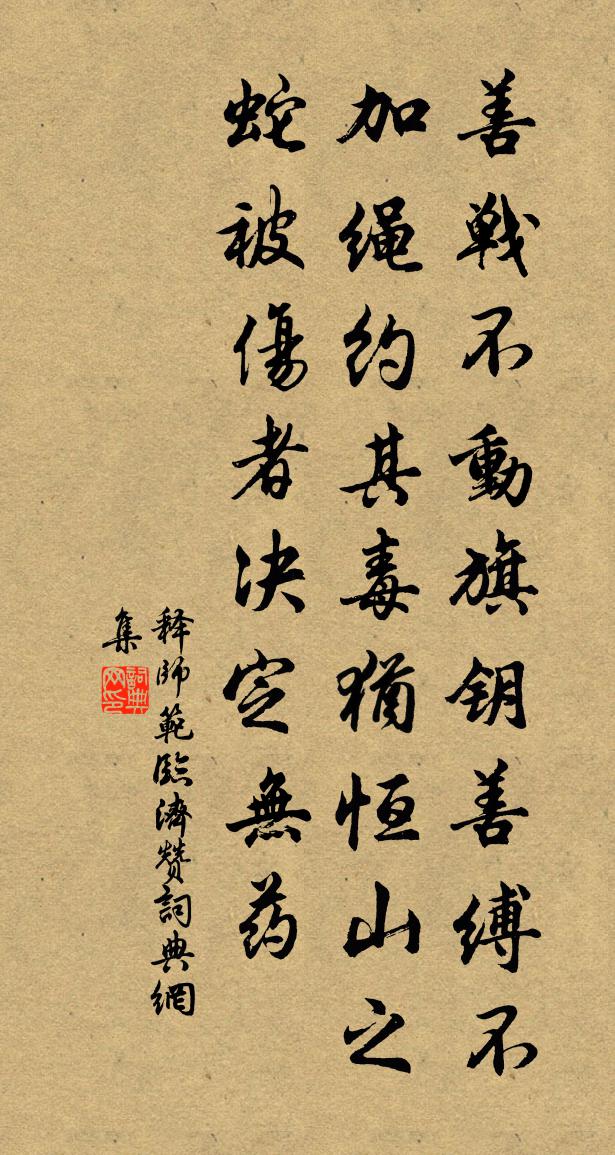 善戦不動旗钥善缚不
加绳约其毒猶恒山之
蛇被傷者决定無药
释師範臨濟赞詞典網
集
詞典
网印